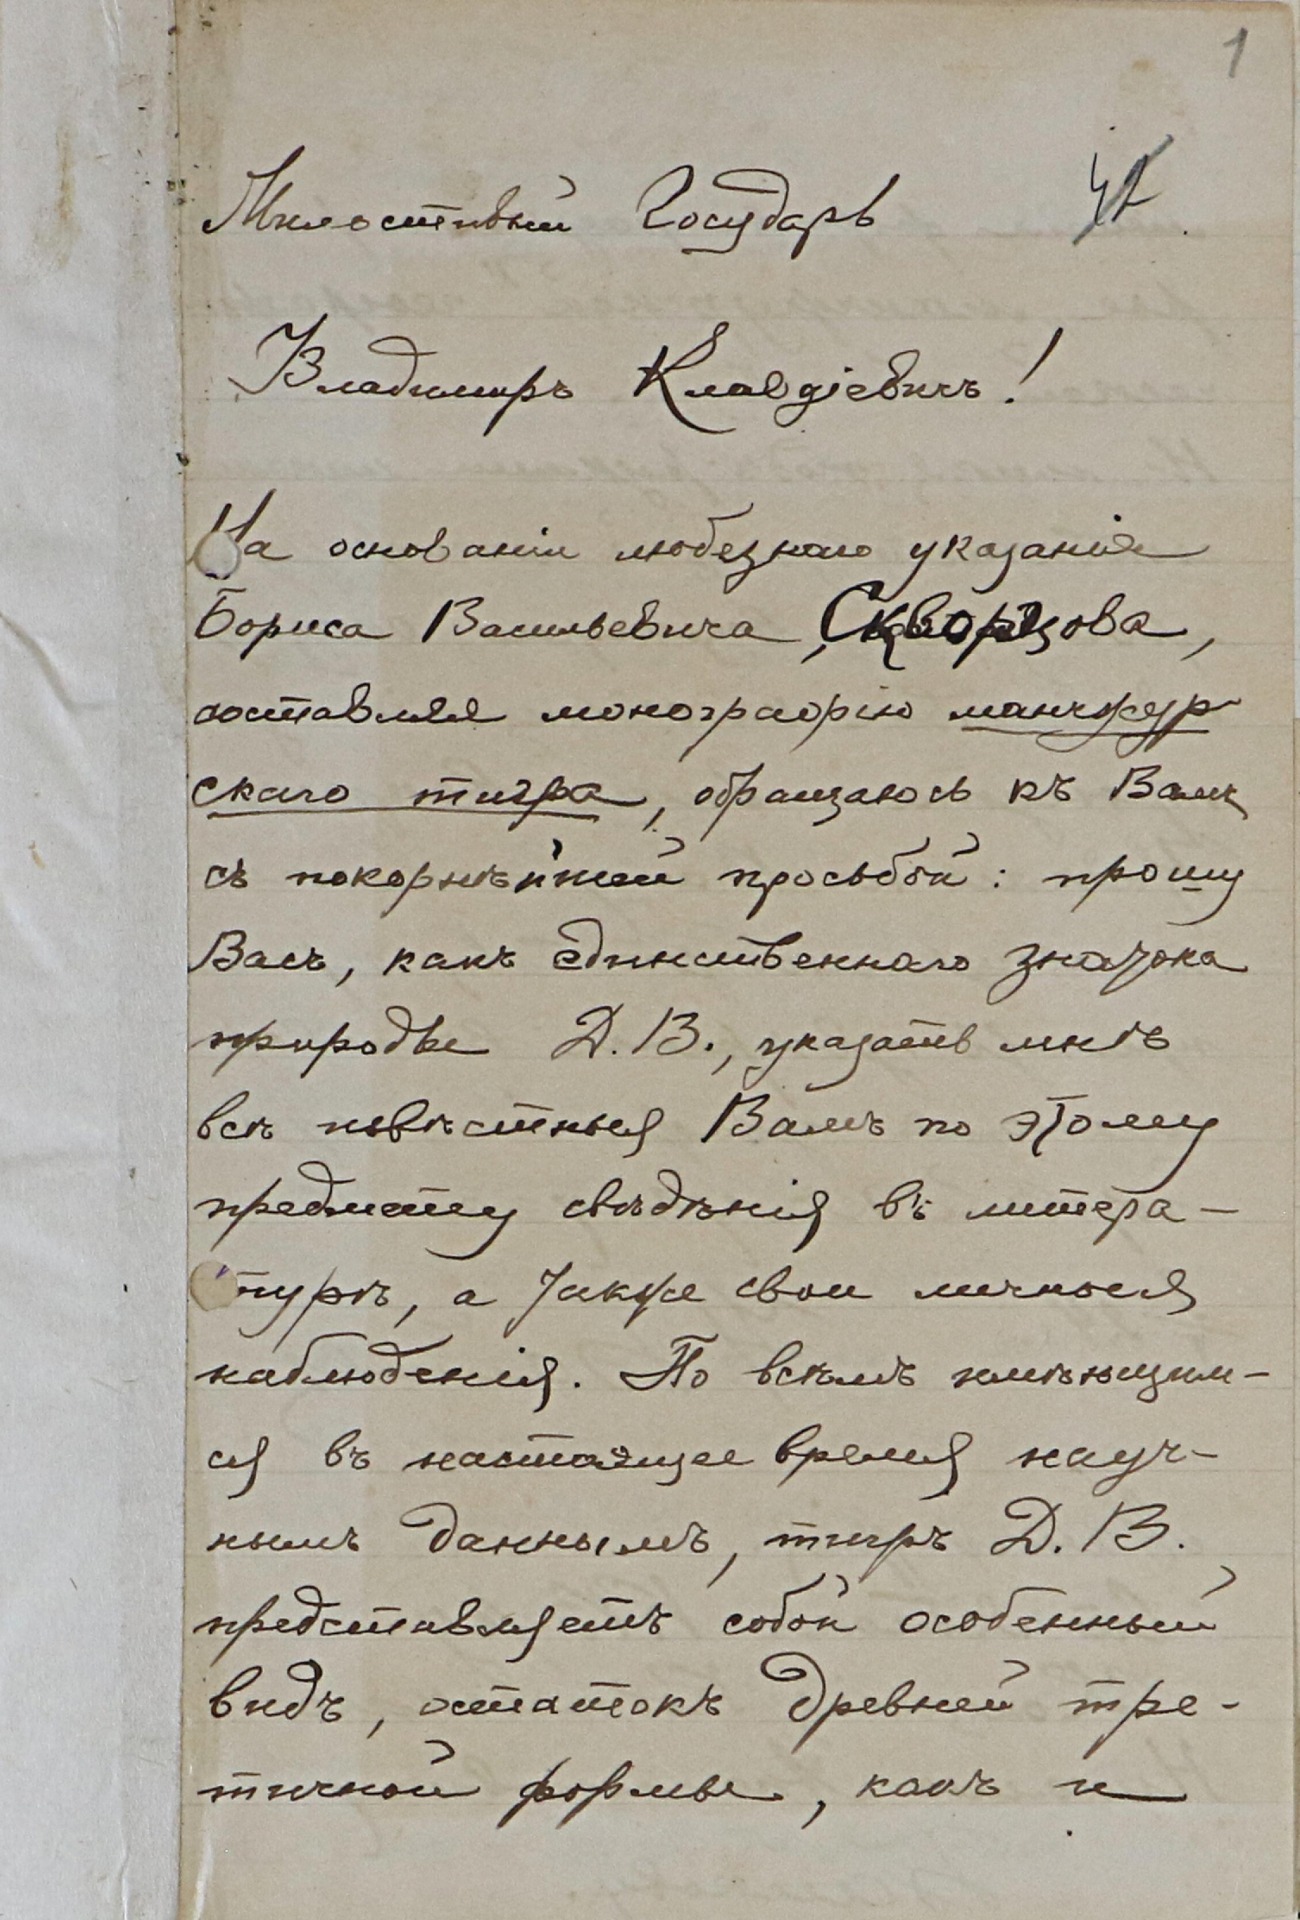 1
42
Милостивый Государь
Владимиръ Клавдіевичъ!
На основаніи любезнаго указанія
Бориса Васильевича Скворцова,
составляя монографію манчжур
скаго тигра, обращаюсь къ Вамъ
съ покорнѣйшей просьбой: прошу
Васъ, какъ единственнаго знатока
природы Д. В., указать мнѣ
всѣ извѣстныя Вамъ по этому
предмету свѣдѣнія въ литера-
турѣ, а также свои личныя
наблюденія. По всѣмъ имѣющим-
ся въ настоящее время науч-
нымъ даннымъ, тигръ Д. В.
представляетъ собой особенный
видъ, остатокъ древней тре-
тичной формы, какъ и